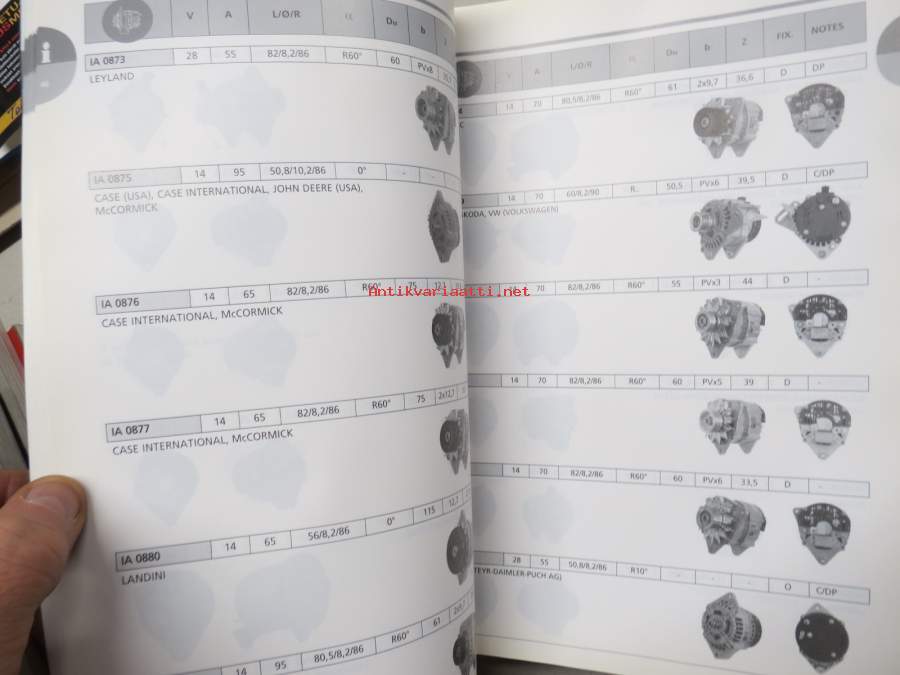 V A L/Ø/R α Du b
IA 0873 28 55 82/8,2/86 R60° 60 PVx8
LEYLAND
IA 0875 14 95 50,8/10,2/86 0° - -
CASE (USA), CASE INTERNATIONAL, JOHN DEERE (USA),
McCORMICK
IA 0876 14 65 82/8,2/86 R60° 75
CASE INTERNATIONAL, McCORMICK
IA 0877 14 65 82/8,2/86 R60° 75 2x12,7
CASE INTERNATIONAL, McCORMICK
IA 0880 14 65 56/8,2/86 0° 115 12,7
LANDINI
14 95 80,5/8,2/86 R60° 61 2x9,7
V A L/Ø/R Du b Z FIX. NOTES
14 70 80,5/8,2/86 R60° 61 2x9,7 36,6 D DP
14 70 60/8,2/90 R.. 50,5 PVx6 39,5 D C/DP
SKODA, VW (VOLKSWAGEN)
70 82/8,2/86 R60° 55 PVx3 44 D -
14 70 82/8,2/86 R60° 60 PVx5 39 D -
14 70 82/8,2/86 R60° 60 PVx6 33,5 D -
28 55 50,8/8,2/86 R10° - - - O C/DP
TEYR-DAIMLER-PUCH AG)
Antikvariaatti.net